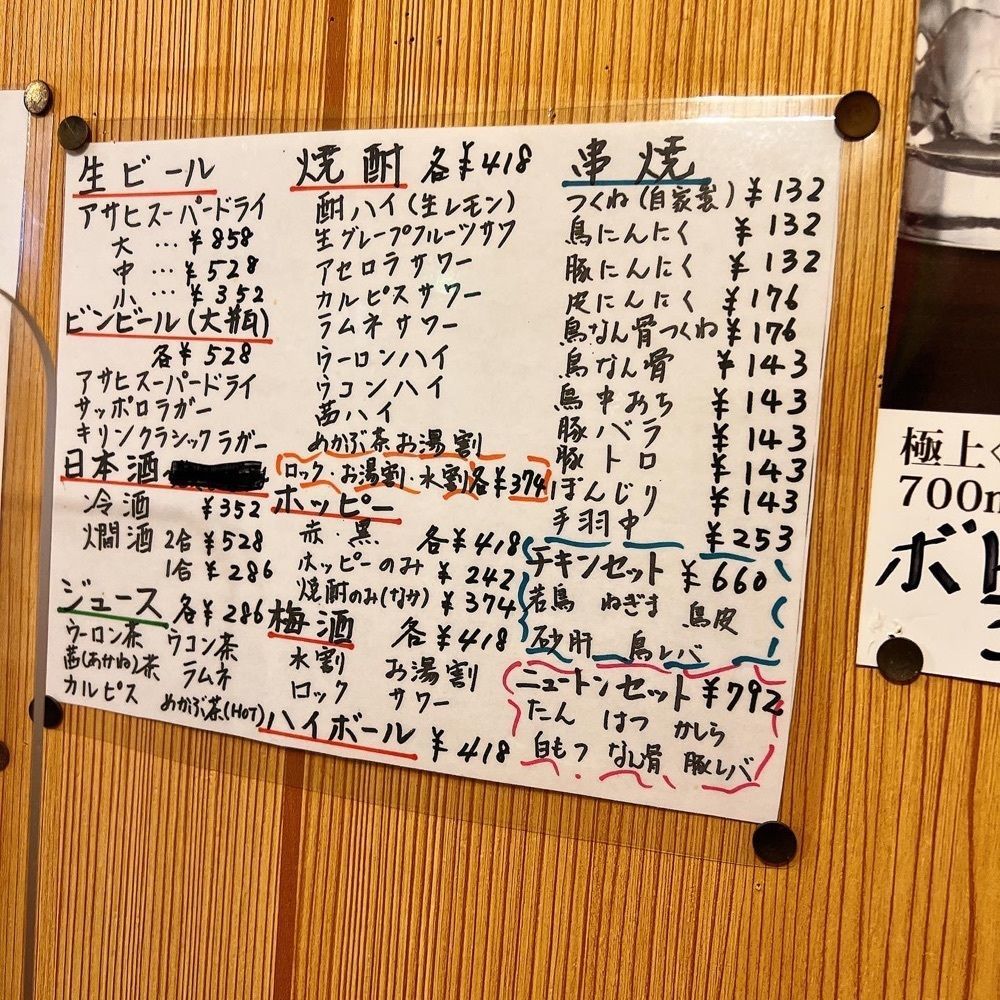 生ビール
アサヒスーパードライ
大 … ¥858
中 … ¥528
小 … ¥352
ビンビール(大瓶)
各¥528
アサヒスーパードライ
サッポロラガー
キリンクラシックラガー
日本酒
冷酒 ¥352
燗酒 2合 ¥528
1合 ¥286
ジュース 各¥286
ウーロン茶 ウコン茶
茜(あかね)茶 ラムネ
カルピス めかぶ茶(HOT)
焼酎 各¥418
酎ハイ(生レモン)
生グレープフルーツサワ
アセロラサワー
カルピスサワー
ラムネサワー
ウーロンハイ
ウコンハイ
茜ハイ
めかぶ茶お湯割
ロック・お湯割・水割各¥374
ホッピー
赤・黒 各¥418
ホッピーのみ ¥242
焼酎のみ(なか) ¥374
梅酒 各¥418
水割 お湯割
ロック サワー
ハイボール ¥418
串焼
つくね(自家製) ¥132
鳥にんにく ¥132
豚にんにく ¥132
皮にんにく ¥176
鳥なん骨つくね ¥176
鳥なん骨 ¥143
鳥中おち ¥143
豚バラ ¥143
豚トロ ¥143
ぼんじり ¥143
手羽中 ¥253
チキンセット ¥660
若鳥 ねぎま 鳥皮
砂肝 鳥レバ
ニュートンセット ¥792
たん はつ かしら
白もつ なん骨 豚レバ
極上
700m